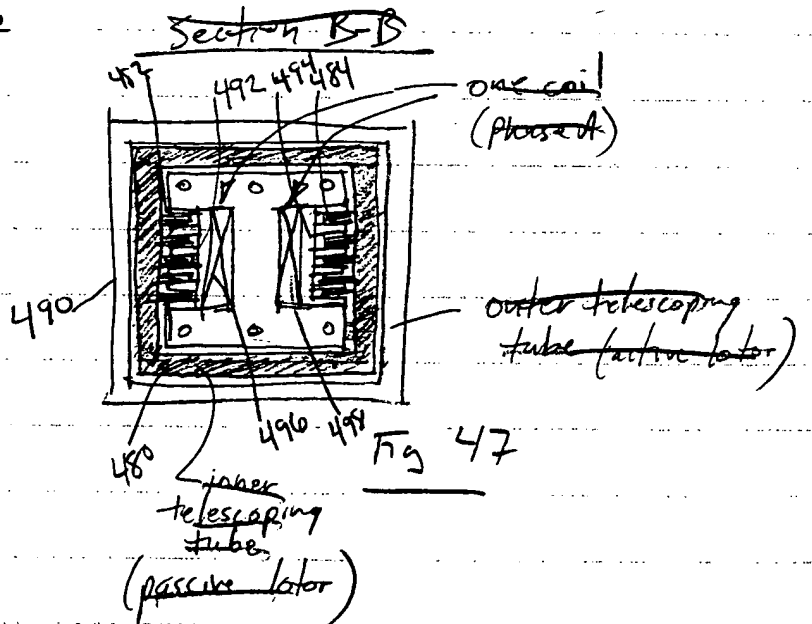 Section B-B
482
492
494
484
one coil
(phase A)
490
outer telescoping
tube (active lator)
480
496
498
Fig 47
inner
telescoping
tube
(passive lator)